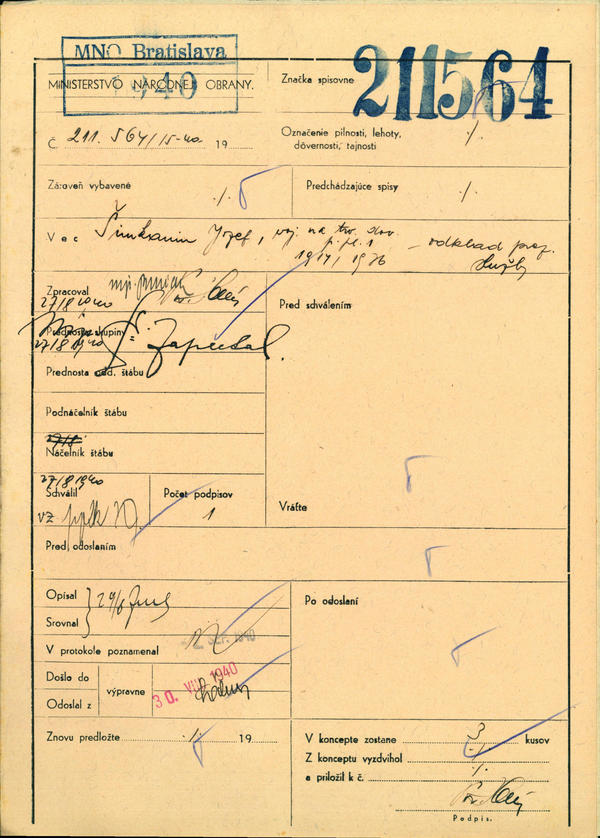 MNO Bratislava
1940
MINISTERSTVO NÁRODNEJ OBRANY.
Značka spisovne
211564
Č 211.564/15-40 19
Označenie pilnosti, lehoty,
dôvernosti, tajnosti
·/.
Zároveň vybavené ·/.
Predchádzajúce spisy ·/.
Vec Jozef, voj. na trv. dov.
odklad prez.
služby
Zpracoval
27/8 1940
Pred schválením
Prednosta skupiny
27/8 1940
Prednosta odd. štábu
Podnáčelník štábu
27/8
Náčelník štábu
27/8 1940
Schválil
vz
Počet podpisov
1
Vráťte
Pred odoslaním
Opísal
Srovnal
29/8
Po odoslaní
V protokole poznamenal
1940
Došlo do
Odoslal z
výpravne
30. VIII. 1940
Znovu predložte ·/. 19
V koncepte zostane 3 kusov
Z konceptu vyzdvihol ·/.
a priložil k č. ·/.
Podpis.